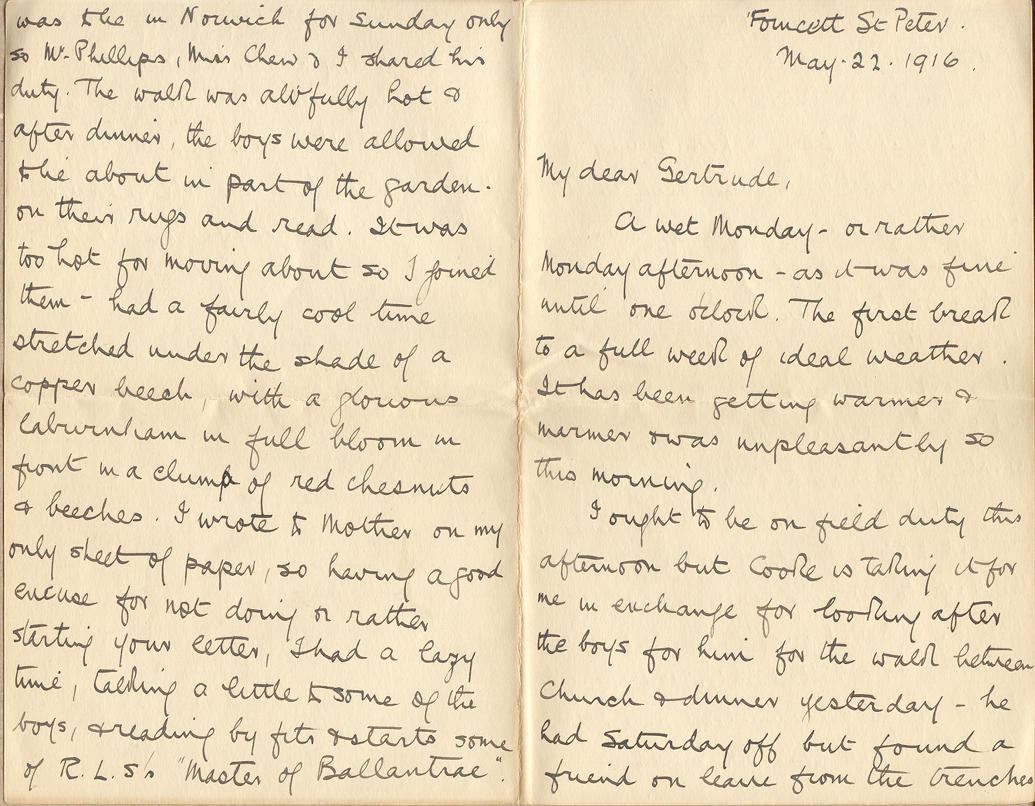 Forncett St Peter.
May. 22. 1916.
My dear Gertrude,
A wet Monday - or rather
Monday afternoon - as it was fine
until one o'clock. The first break
to a full week of ideal weather.
It has been getting warmer &
warmer & was unpleasantly so
this morning.
I ought to be on field duty this
afternoon but Cooke is taking it for
me in exchange for looking after
the boys for him for the walk between
Church & dinner yesterday - he
had Saturday off but found a
friend on leave from the trenches
was to be in Norwich for Sunday only
so Mr. Phillips, Miss Chew & I shared his
duty. The walk was awfully hot &
after dinner, the boys were allowed
to lie about in part of the garden.
on their rugs and read. It was
too hot for moving about so I joined
them - had a fairly cool time
stretched under the shade of a
copper beech, with a glorious
laburnham in full bloom in
front in a clump of red chesnuts
& beeches. I wrote to Mother on my
only sheet of paper, so having a good
excuse for not doing or rather
starting your letter, I had a lazy
time, talking a little to some of the
boys, & reading by fits & starts some
of R.L.S's "Master of Ballantrae".